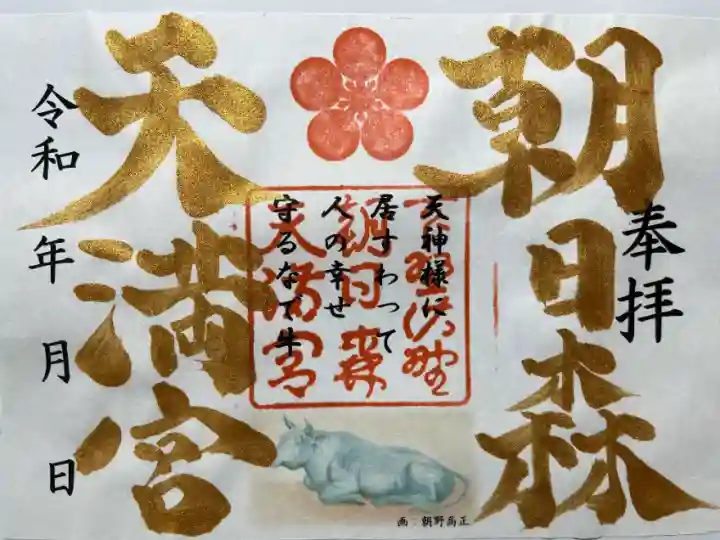 奉拝
朝日森
天満宮
天神様に
居すわって
人の幸せ
守るなで牛
朝日森
天満宮
令和 年 月 日
画：朝野嵩正